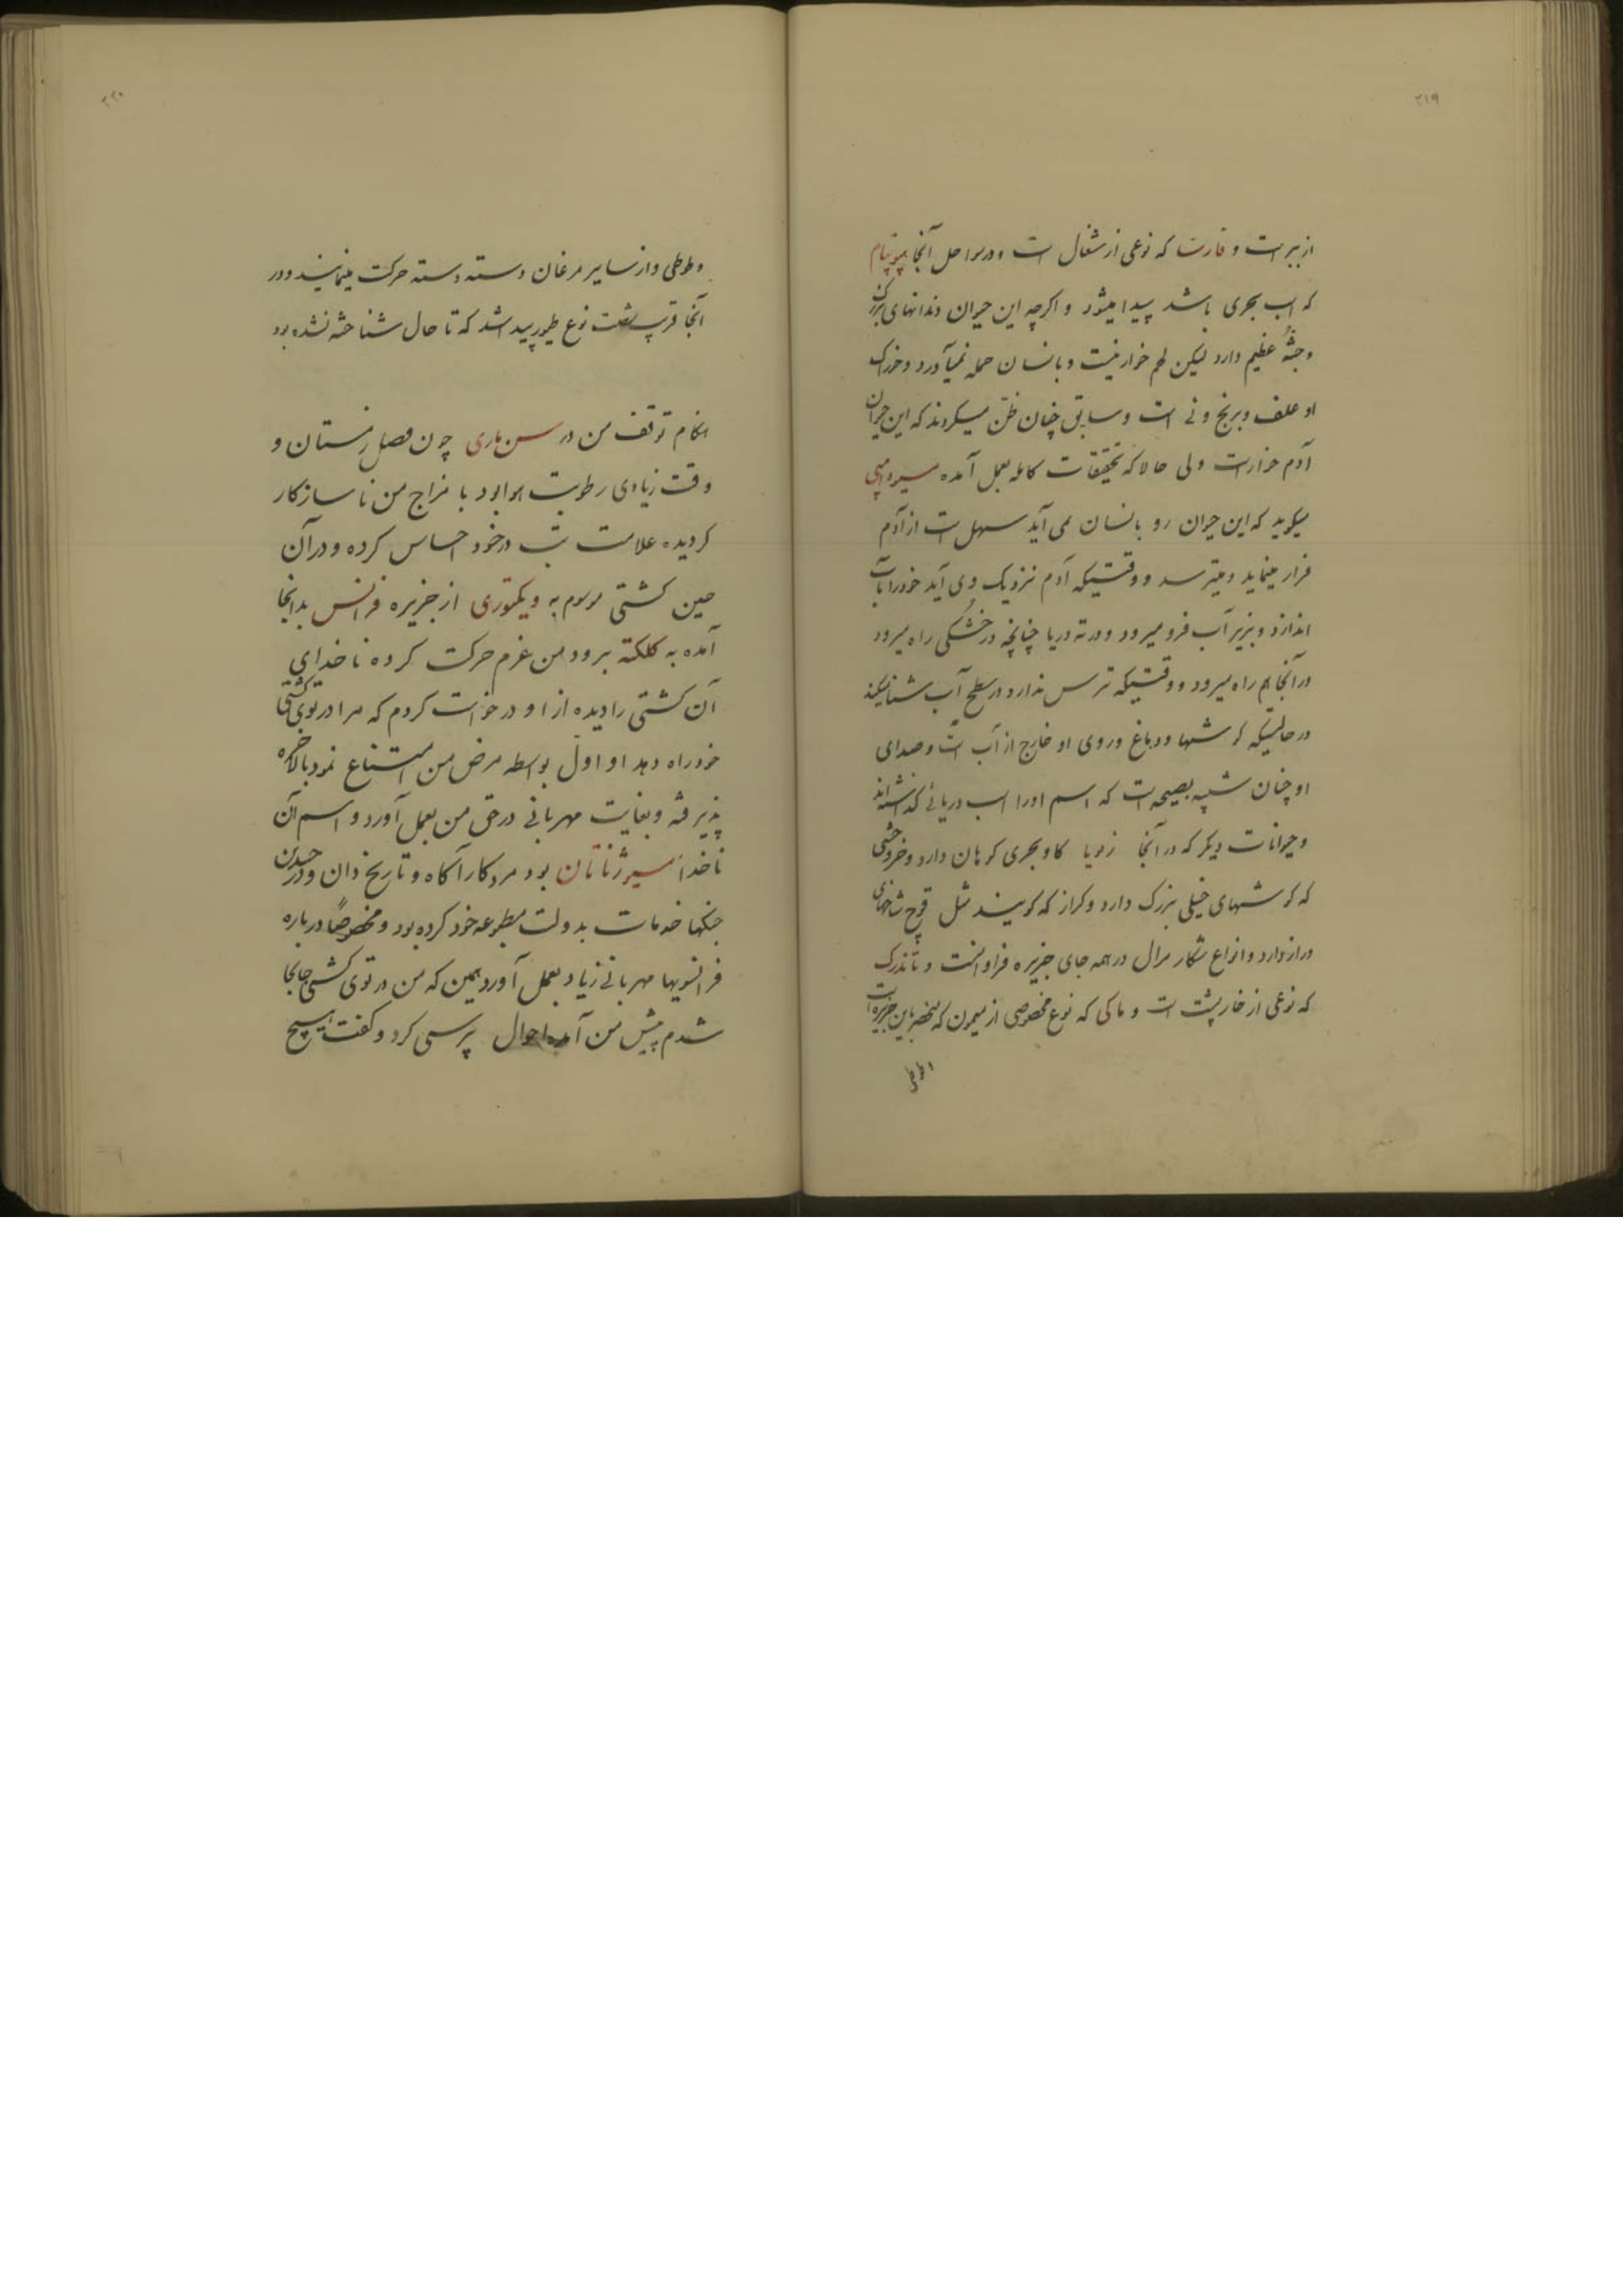 ۲۱۹
از ببر است و فارت که نوعی از شغال است و در سواحل آنجا هیوپتام
که اسب بحری باشد پیدا میشود و اگرچه این حیوان دندانهای بزرک
و جثهٔ عظیم دارد لیکن لحم خوار نیست و بانسان حمله نمیآورد و خوراک
او علف و برنج و نی است و سابق چنان ظن میکردند که این حیوان
آدم خوار است ولی حالا که تحقیقات کامله بعمل آمده
میکوید که این حیوان رو بانسان نمی آید سهل است از آدم
فرار مینماید و میترسد و وقتیکه آدم نزدیک وی آید خود را بآب
اندازد و بزیر آب فرو میرود و در ته دریا چنانچه در خشکی راه میرود
در آنجا هم راه میرود و وقتیکه ترس ندارد در سطح آب شنا میکند
در حالتیکه کوشها و دماغ و روی او خارج از آب است و صدای
او چنان شبیه بصیحه است که اسم او را اسب دریائی کذاشته‌اند
و حیوانات دیکر که در آنجا زبویا کاو بحری کوهان دارد و خر وحشی
که کوشهای خیلی بزرک دارد و کراز که کویند مثل قوچ شاخهای
دراز دارد و انواع شکار مرال در همه جای جزیره فراوانست و تاندرک
که نوعی از خارپشت است و ماکی که نوع مخصوصی از میمون که منحصر باین جزیره است
وطوطی
۲۲۰
و طوطی و از سایر مرغان دسته دسته حرکت مینمایند و در
آنجا قریب شصت نوع طیور پیدا شد که تا حال شناخته نشده بود
هنکام توقف من در سن ماری چون فصل زمستان و
وقت زیادی رطوبت هوا بود با مزاج من ناسازکار
کردیده علامت تب در خود احساس کرده و در آن
حین کشتی موسوم به ویکتوری از جزیره فرانس بدانجا
آمده به کلکته برود من عزم حرکت کرده ناخدای
آن کشتی را دیده از او درخواست کردم که مرا در توی کشتی
خود راه دهد او اول بواسطه مرض من امتناع نمود بالاخره
پذیرفته و بغایت مهربانی در حق من بعمل آورد و اسم آن
ناخدا مسیو ژناتان بود مرد کار آکاه و تاریخ دان و در چندین
جنکها خدمات بدولت مطبوعه خود کرده بود و مخصوصاً درباره
فرانسویها مهربانی زیاد بعمل آورد همین که من در توی کشتی جابجا
شدم پیش من آمده احوال پرسی کرد و کفت هیچ